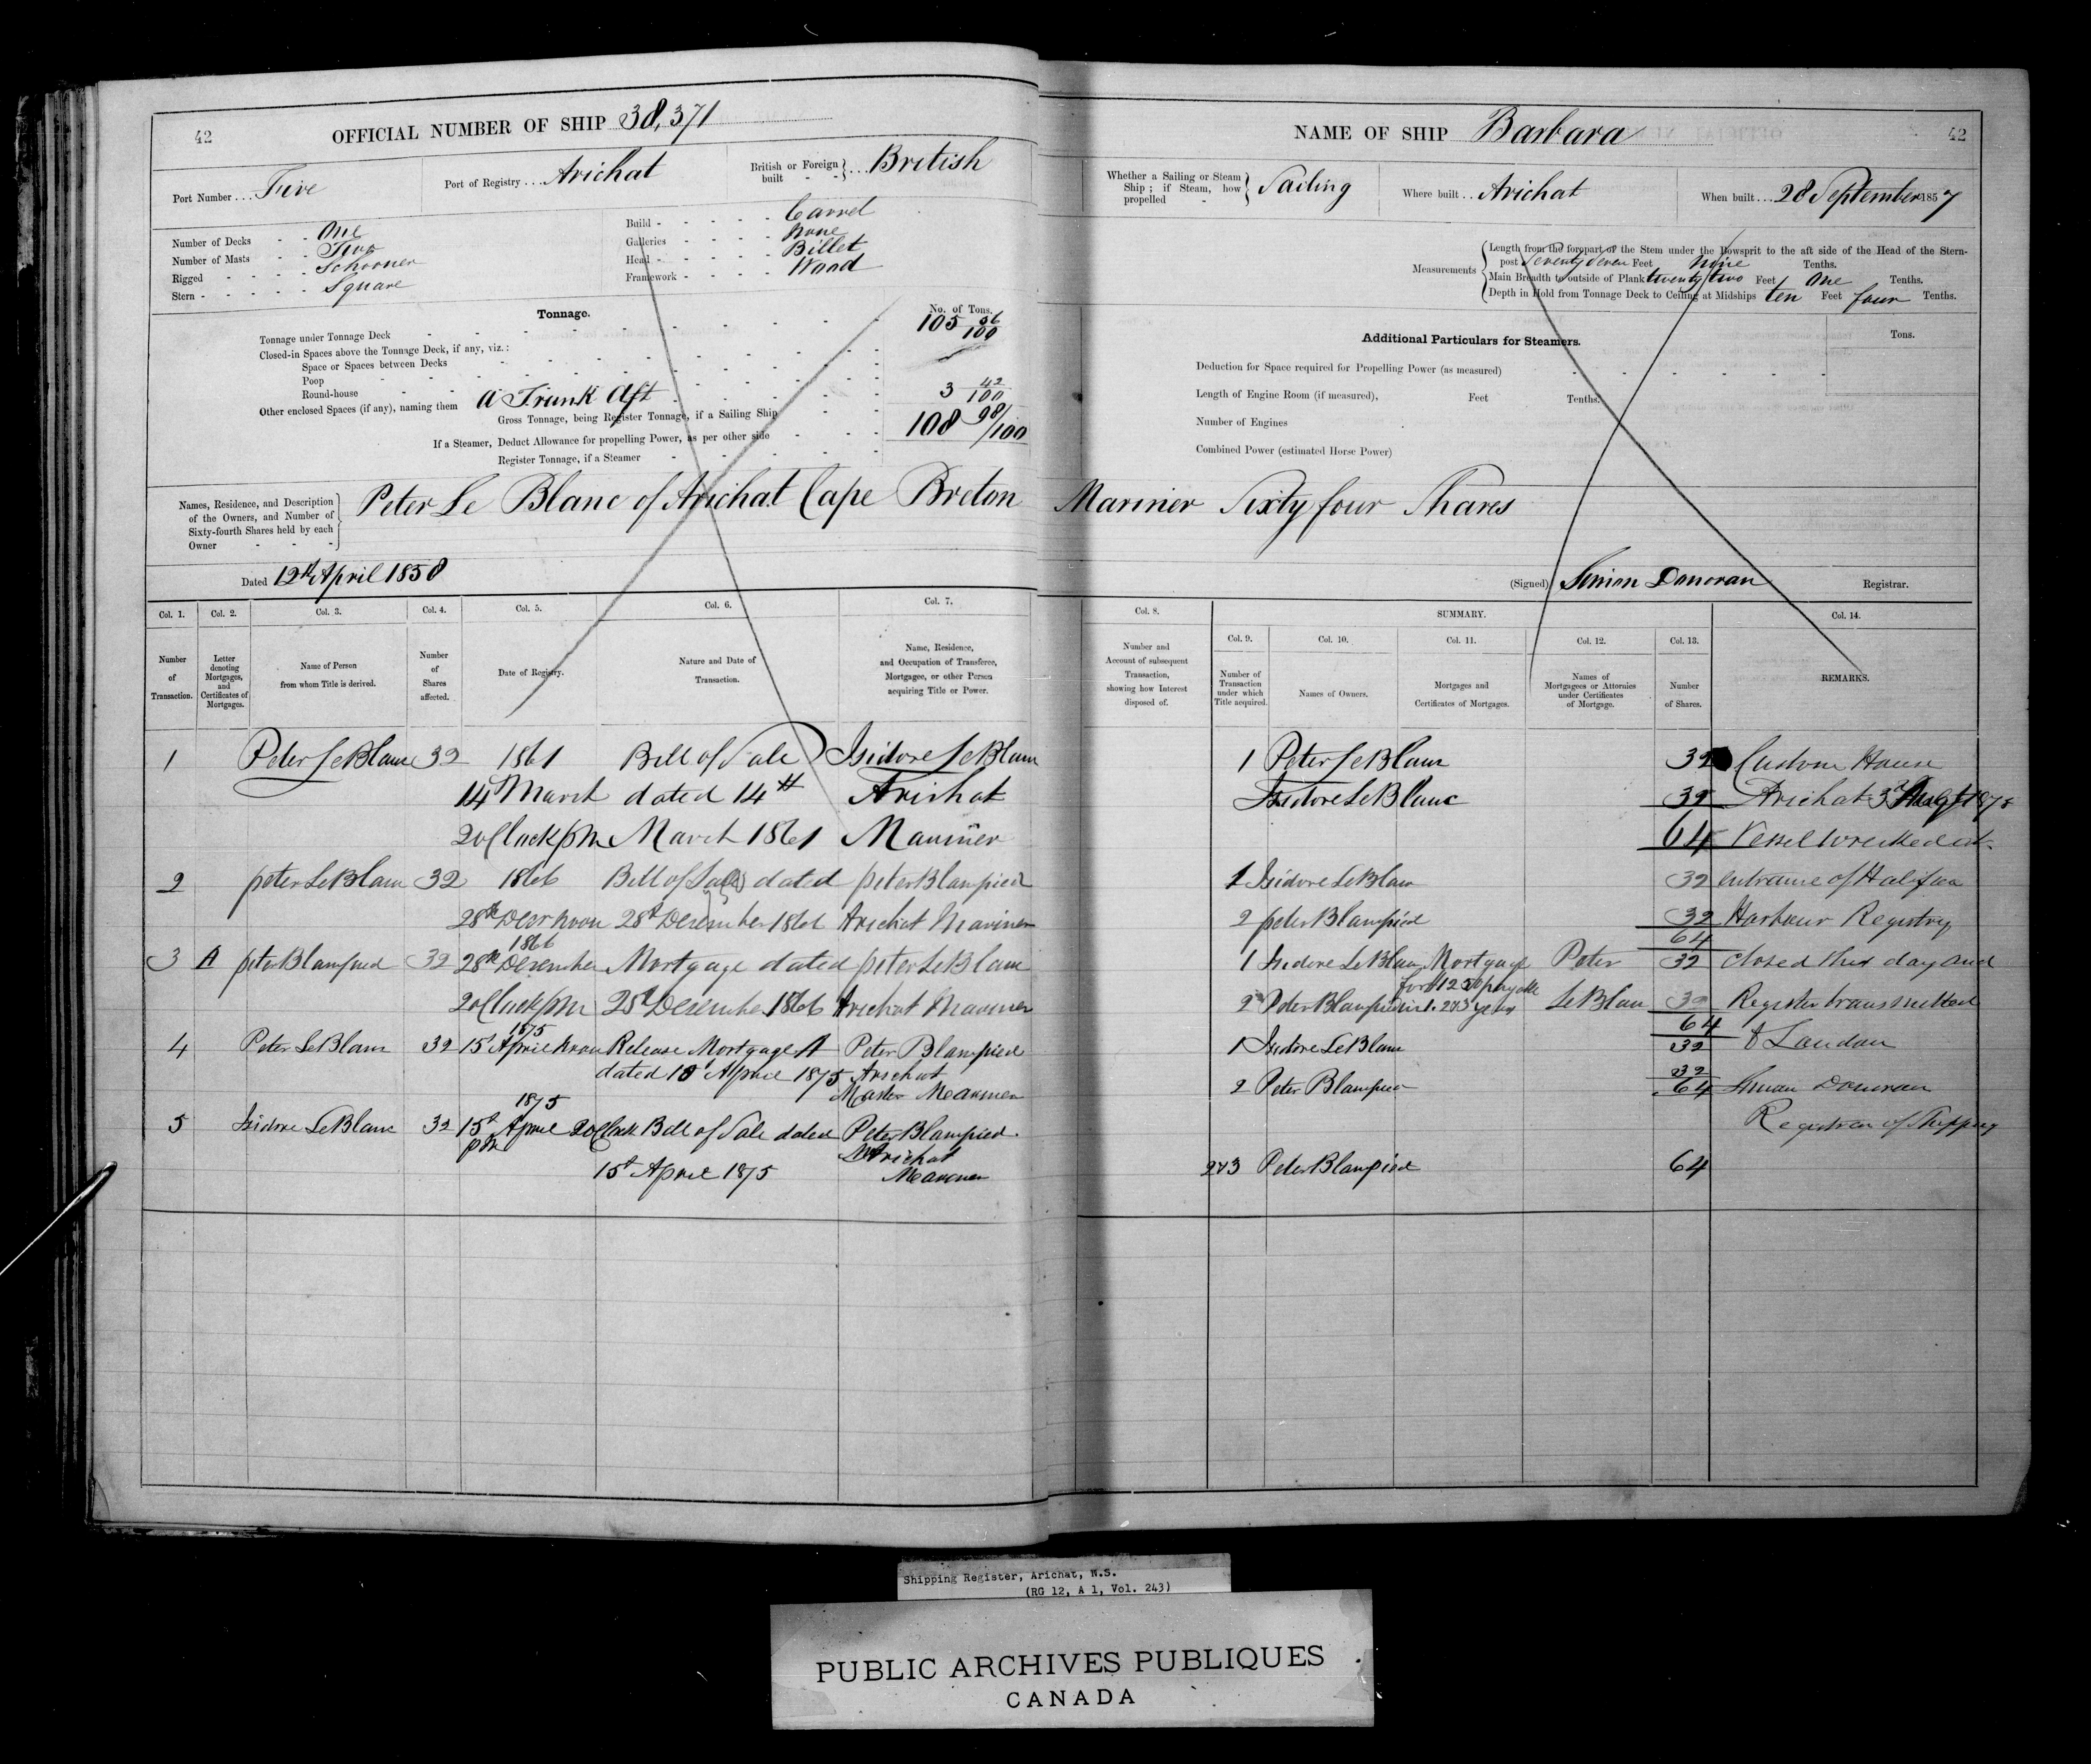 42
OFFICIAL NUMBER OF SHIP 38,371
Port Number . . . Five
Port of Registry . . . Arichat
British or Foreign built - - } . . . British
Number of Decks - - One
Number of Masts - - Two
Rigged - - - - Schooner
Stern - - - - - Square
Build - - - - - Carvel
Galleries - - - - None
Head - - - - - Billet
Framework - - - - Wood
Tonnage.
No. of Tons.
Tonnage under Tonnage Deck 105 56/100
Closed-in Spaces above the Tonnage Deck, if any, viz.:
Space or Spaces between Decks
Poop
Round-house
Other enclosed Spaces (if any), naming them A Trunk Aft 3 42/100
Gross Tonnage, being Register Tonnage, if a Sailing Ship 108 98/100
If a Steamer, Deduct Allowance for propelling Power, as per other side
Register Tonnage, if a Steamer
Names, Residence, and Description of the Owners, and Number of Sixty-fourth Shares held by each Owner
Peter Le Blanc of Arichat Cape Breton
Dated 12th April 1858
Col. 1. Col. 2. Col. 3. Col. 4. Col. 5. Col. 6. Col. 7.
Number of Transaction.
Letter denoting Mortgages, and Certificates of Mortgages.
Name of Person from whom Title is derived.
Number of Shares affected.
Date of Registry.
Nature and Date of Transaction.
Name, Residence, and Occupation of Transferee, Mortgagee, or other Person acquiring Title or Power.
1 Peter LeBlanc 32 1861 Bill of Sale Isidore LeBlanc
14 March dated 14th Arichat
2 oClock pm March 1861 Mariner
2 peter LeBlanc 32 1866 Bill of Sale dated peter Blampied
28th Decr noon 28th December 1866 Arichat Mariner
1866
3 A peter Blampied 32 28th December Mortgage dated peter LeBlanc
2 oClock pm 28th December 1866 Arichat Mariner
1875
4 Peter LeBlanc 32 15 April noon Release Mortgage A Peter Blampied
dated 10 April 1875 Arichat
Master Mariner
1875
5 Isidore LeBlanc 32 15th April 2 oClock Bill of Sale dated Peter Blampied
pm Arichat
15th April 1875 Mariner
NAME OF SHIP Barbara
42
Whether a Sailing or Steam Ship ; if Steam, how propelled - } Sailing
Where built . . Arichat
When built . . . 28 September 1857
Measurements
Length from the forepart of the Stem under the Bowsprit to the aft side of the Head of the Stern-
post Seventy Seven Feet Nine Tenths.
Main Breadth to outside of Plank twenty two Feet One Tenths.
Depth in Hold from Tonnage Deck to Ceiling at Midships ten Feet four Tenths.
Additional Particulars for Steamers.
Tons.
Deduction for Space required for Propelling Power (as measured)
Length of Engine Room (if measured), Feet Tenths.
Number of Engines
Combined Power (estimated Horse Power)
Mariner Sixty four Shares
(Signed) Simon Donovan Registrar.
Col. 8. SUMMARY. Col. 14.
Col. 9. Col. 10. Col. 11. Col. 12. Col. 13.
Number and Account of subsequent Transaction, showing how Interest disposed of.
Number of Transaction under which Title acquired.
Names of Owners.
Mortgages and Certificates of Mortgages.
Names of Mortgagees or Attornies under Certificates of Mortgage.
Number of Shares.
REMARKS.
1 Peter LeBlanc 32 Custom House
Isidore LeBlanc 32 Arichat
64 Vessel wrecked at
1 Isidore LeBlanc 32 entrance of Halifax
2 peter Blampied 32 Harbour Registry
64
1 Isidore LeBlanc Mortgage Peter 32 closed this day and
2 Peter Blampied LeBlanc 32 Register transmitted
64
1 Isidore LeBlanc 32 to London
32
2 Peter Blampied 64 Simon Donovan
Registrar of Shipping
2&3 Peter Blampied 64
Shipping Register, Arichat, N.S.
(RG 12, A 1, Vol. 243)
PUBLIC ARCHIVES PUBLIQUES
CANADA